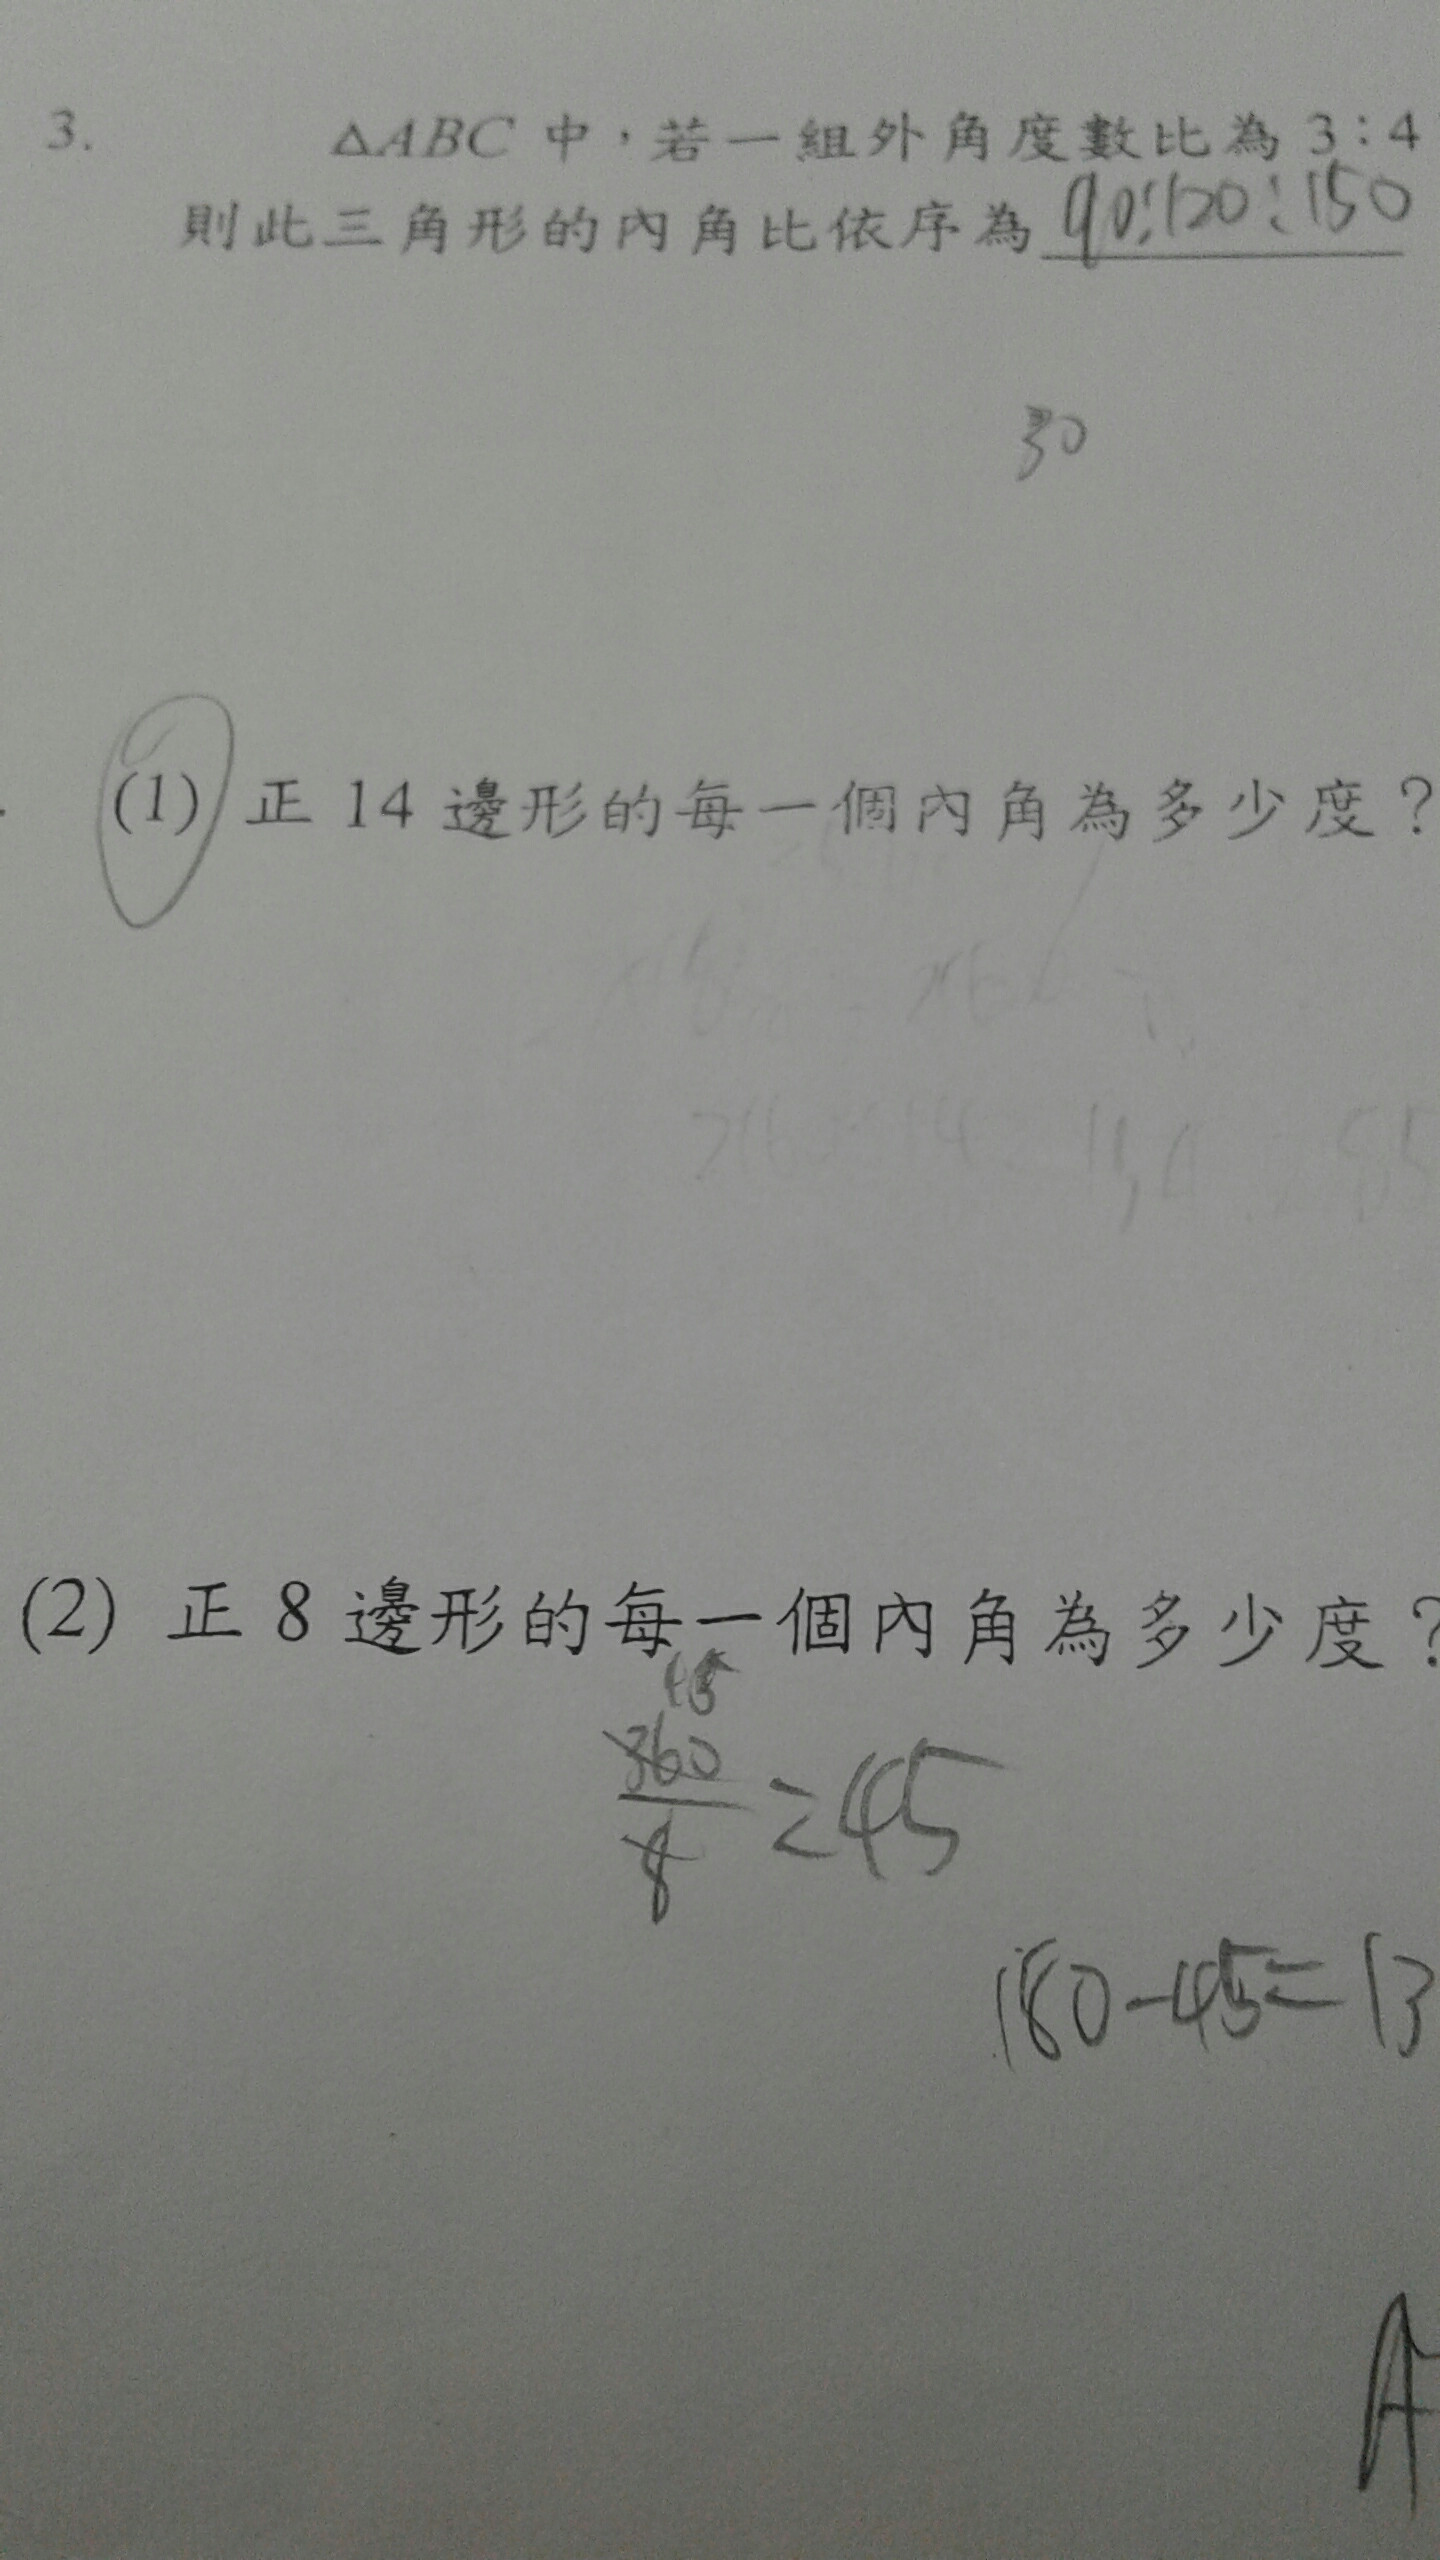 3. △ABC 中，若一組外角度數比為 3：4
則此三角形的內角比依序為 90:120:150
30
(1) 正 14 邊形的每一個內角為多少度？
(2) 正 8 邊形的每一個內角為多少度？
45
360/8 = 45
180-45=13
A